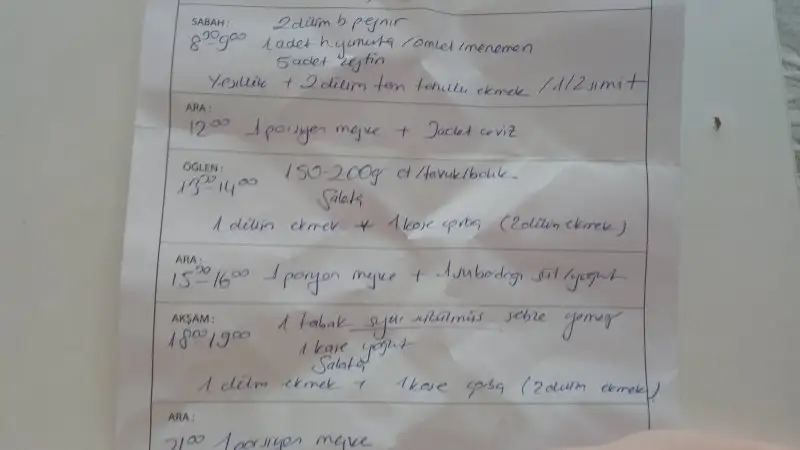 SABAH: 2 dilim b peynir
8³⁰-9⁰⁰ 1 adet h.yumurta /omlet/menemen
5 adet zeytin
Yeşillik + 2 dilim tam tahıllı ekmek /1/2 simit
ARA:
12⁰⁰ 1 porsiyon meyve + 3 adet ceviz
ÖĞLEN: 150-200g et/tavuk/balık
13³⁰-14⁰⁰
Salata
1 dilim ekmek + 1 kase çorba (2 dilim ekmek)
ARA:
15³⁰-16⁰⁰ 1 porsiyon meyve + 1 su bardağı süt/yoğurt
AKŞAM: 1 tabak sebze yemeği
18⁰⁰ 19⁰⁰ 1 kase yoğurt
Salata
1 dilim ekmek + 1 kase çorba (2 dilim ekmek)
ARA:
21⁰⁰ 1 porsiyon meyve